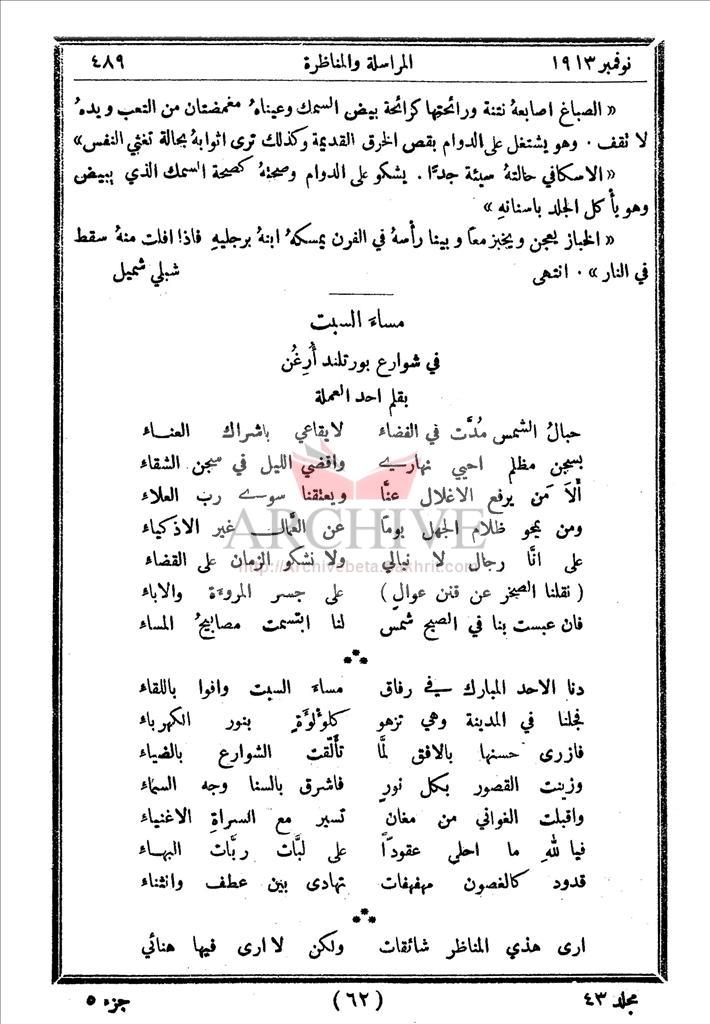 نوفمبر ١٩١٣ المراسلة والمناظرة ٤٨٩
« الصباغ اصابعهُ نتنة ورائحتها كرائحة بيض السمك وعيناهُ مغمضتان من التعب ويدهُ
لا تقف . وهو يشتغل على الدوام بقص الخرق القديمة وكذلك ترى اثوابهُ بحالة تغثي النفس »
« الاسكافي حالتهُ سيئة جدًّا . يشكو على الدوام وصحتهُ كصحة السمك الذي يبيض
وهو يأكل الجلد باسنانهِ »
« الخباز يعجن ويخبز معًا وبينا رأسهُ في الفرن يمسكهُ ابنهُ برجليهِ فاذا افلت منهُ سقط
في النار » . انتهى شبلي شميل
مساءَ السبت
في شوارع بورتلند أُرِغُن
بقلم احد العملة
حبالُ الشمس مُدَّت في الفضاء لايقاعي باشراك العناء
بسجن مظلم احيي نهاري واقضي الليل في سجن الشقاء
ألاَ مَن يرفع الاغلال عنَّا ويعتقنا سوى رب العلاء
ومن يمحو ظلام الجهل يومًا عن العُمَّال غير الاذكياء
على انَّا رجال لا نبالي ولا نشكو الزمان على القضاء
( نقلنا الصخر عن قنن عوالٍ ) على جسر المروءَة والاباء
فان عبست بنا في الصبح شمسٌ لنا ابتسمت مصابيحُ المساء
***
دنا الاحد المبارك في رفاق مساءَ السبت وافوا باللقاء
فجلنا في المدينة وهي تزهو كلؤلؤَةٍ بنور الكهرباء
فازرى حسنها بالافق لمَّا تأَلّقت الشوارع بالضياء
وزينت القصور بكل نورٍ فاشرق بالسنا وجه السماء
واقبلت الغواني من مغان تسير مع السراةِ الاغنياء
فيا للهِ ما احلى عقودًا على لبَّات ربَّات البهاء
قدود كالغصون مهفهفات تهادى بين عطف وانثناء
***
ارى هذي المناظر شائقات ولكن لا ارى فيها هنائي
مجلد ٤٣ ( ٦٢ ) جزء ٥
ARCHIVE
http://Archivebeta.Sakhrit.com